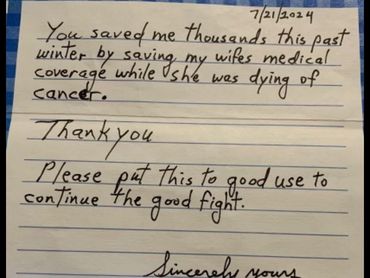 7/21/2024
You saved me thousands this past
winter by saving my wifes medical
coverage while she was dying of
cancer.
Thank you
Please put this to good use to
continue the good fight.
Sincerely yours